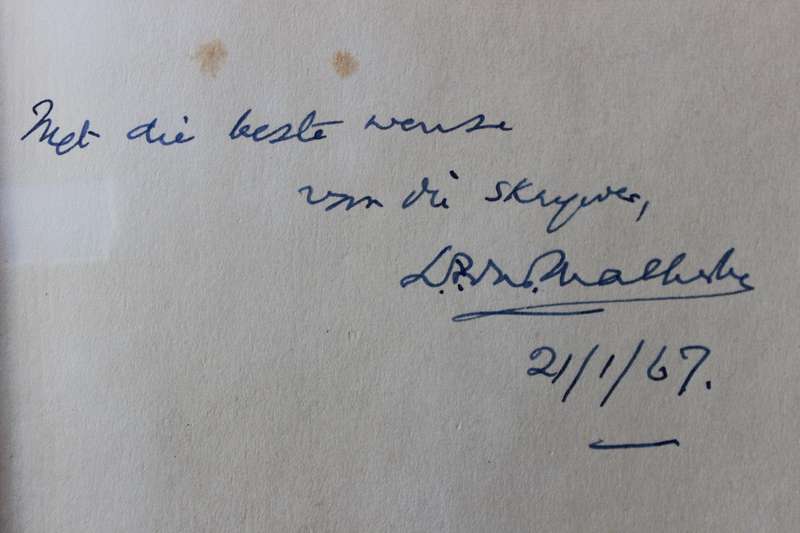 Met die beste wense
van die skrywer,
D.F. Malherbe
21/1/67.